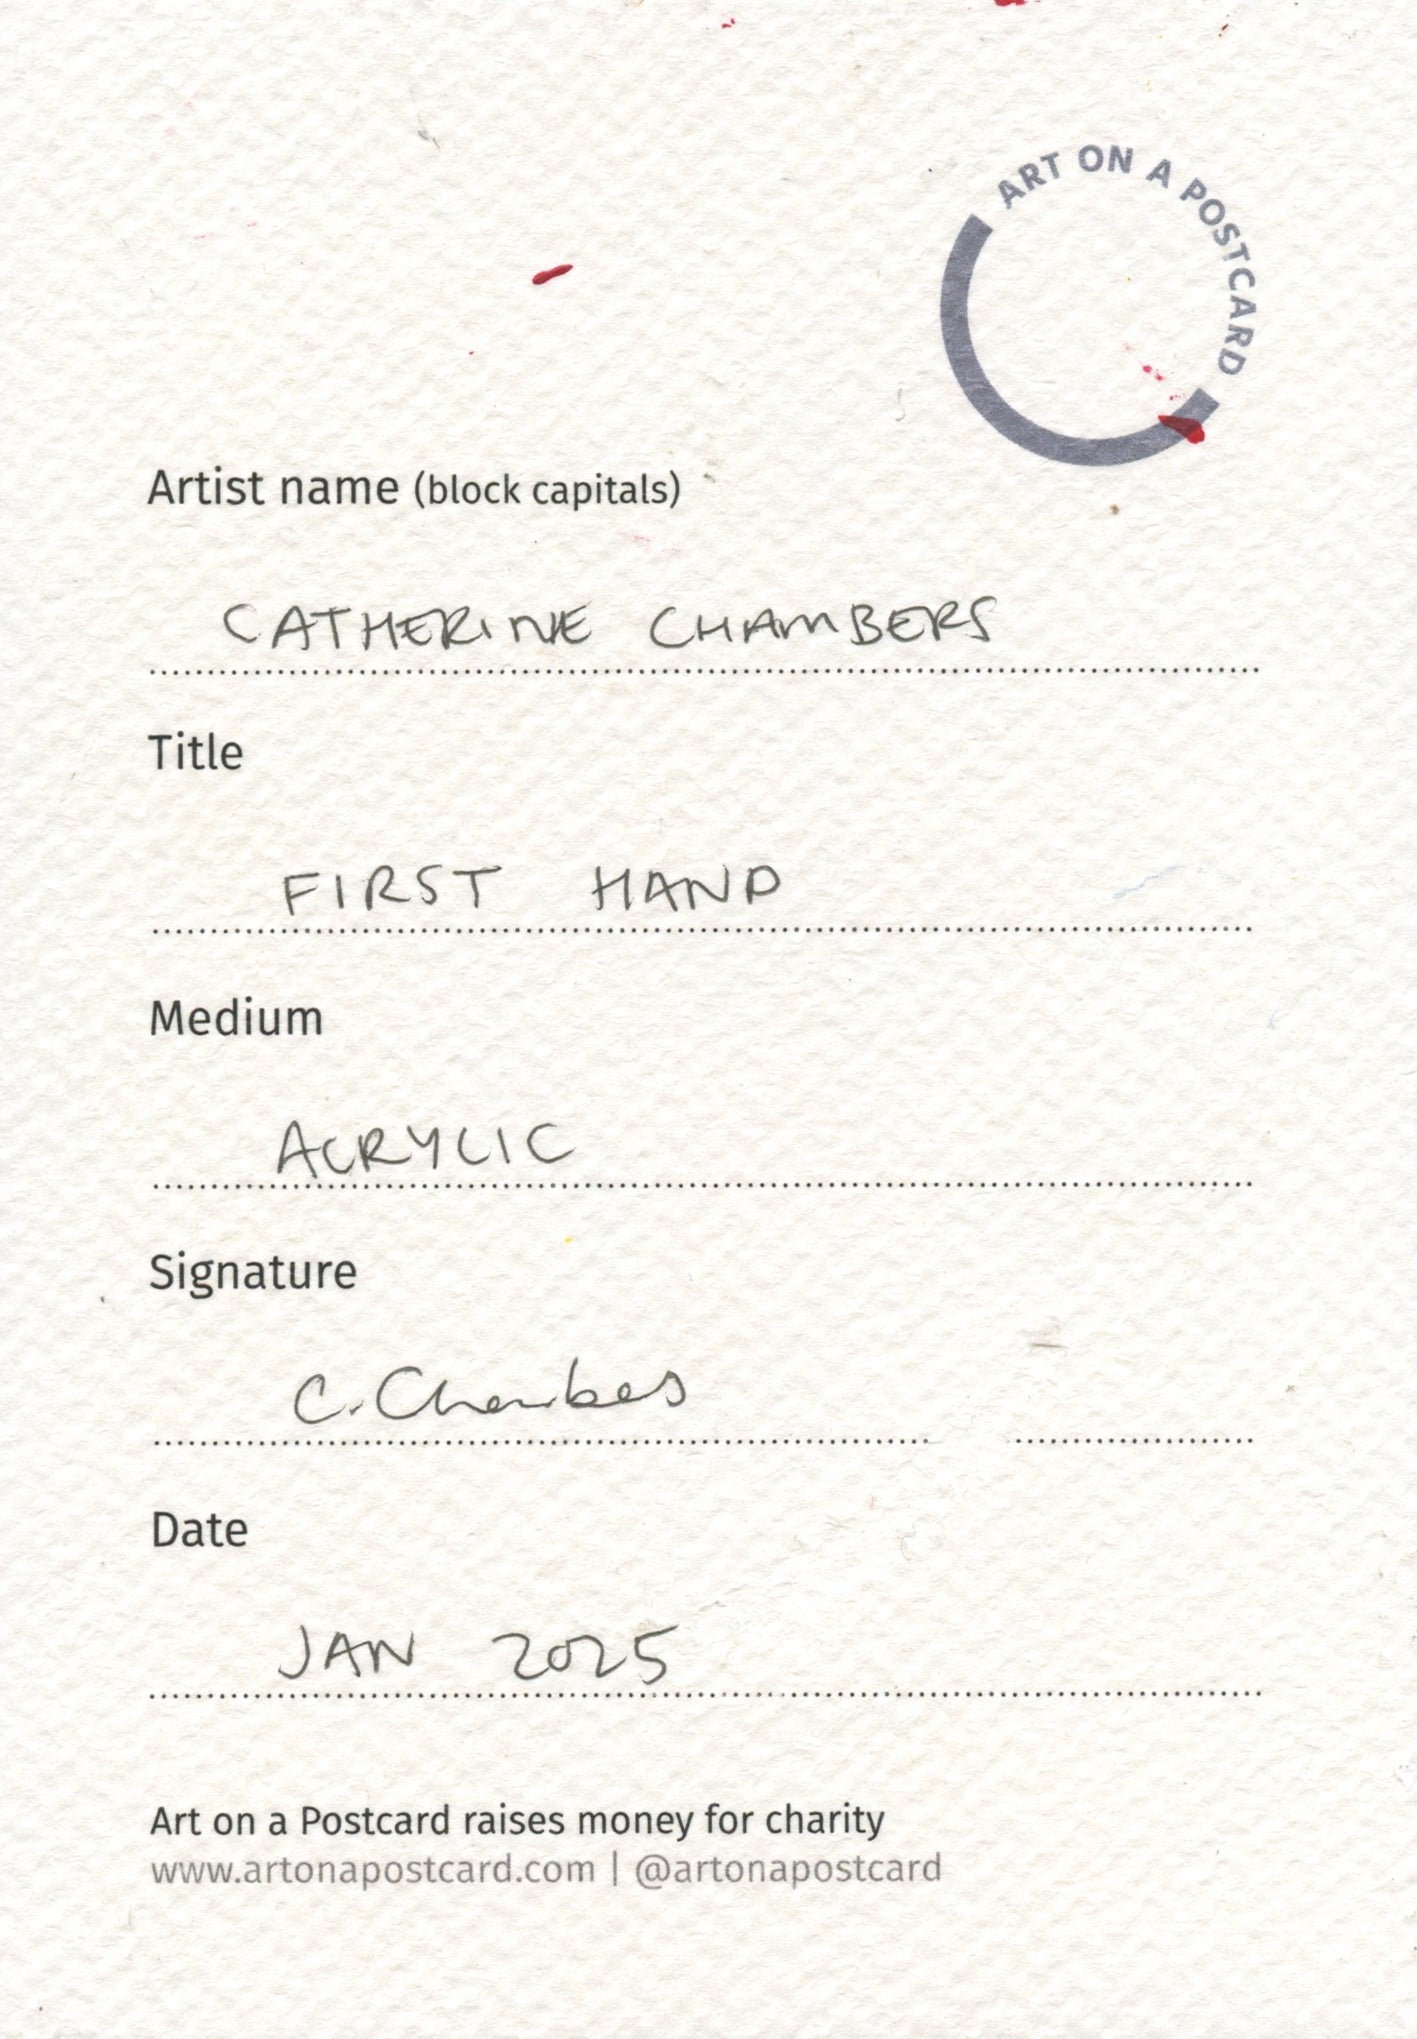 ART ON A POSTCARD
Artist name (block capitals)
CATHERINE CHAMBERS
Title
FIRST HAND
Medium
ACRYLIC
Signature
C. Chambers
Date
JAN 2025
Art on a Postcard raises money for charity
www.artonapostcard.com | @artonapostcard